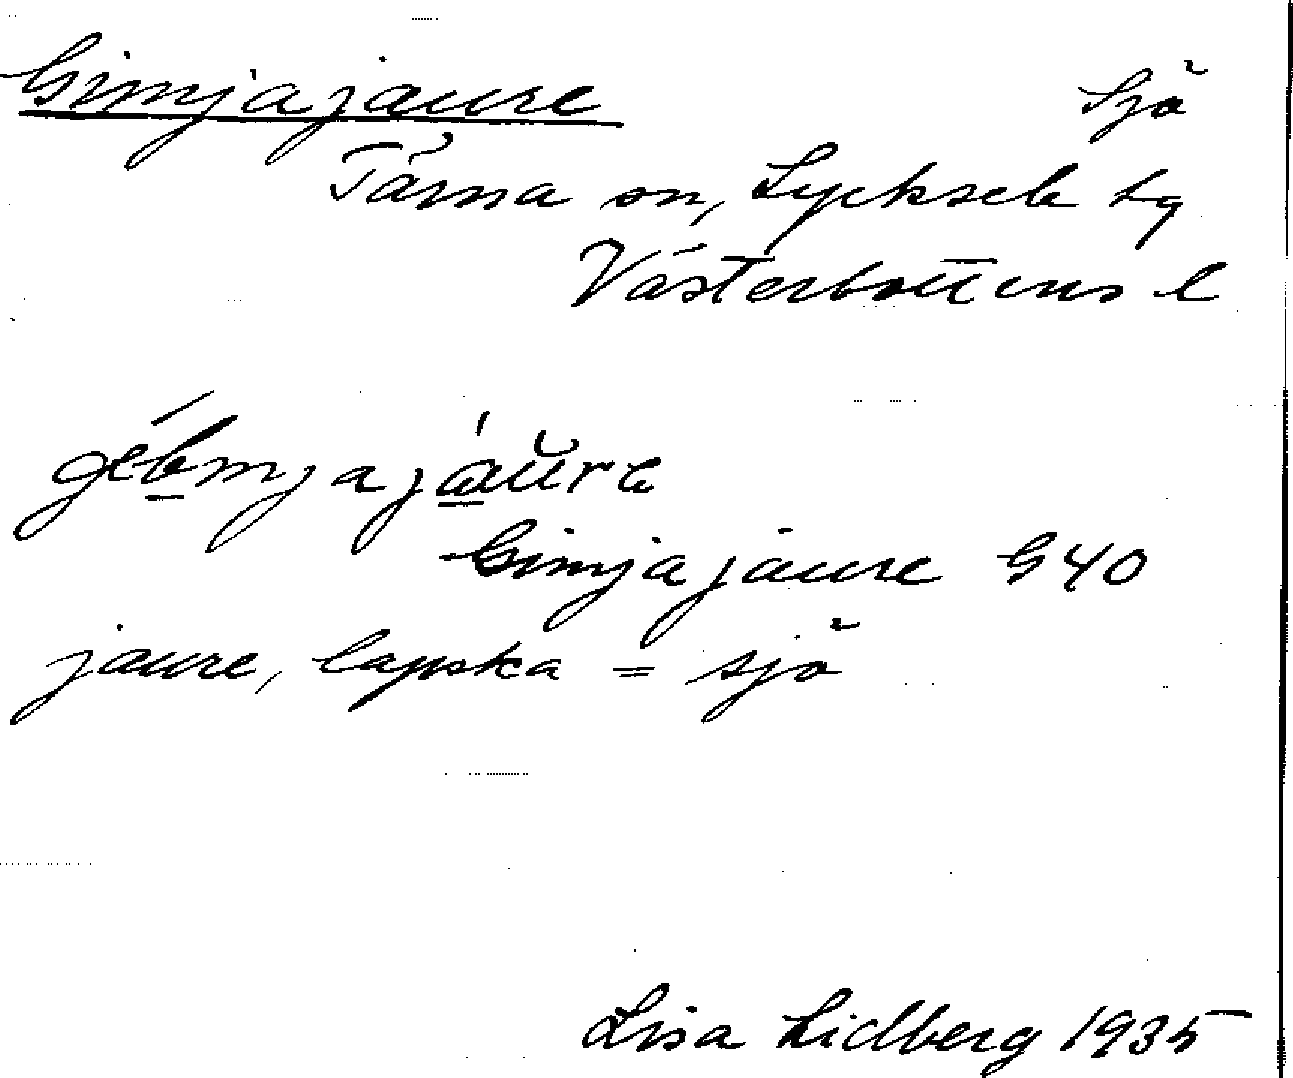 Gimjajaure Sjö
Tärna sn, Lycksele lg
Västerbottens l
gébmjajáŭre
Gimjajaure G40
jaure, lapska = sjö
Lisa Lidberg 1935